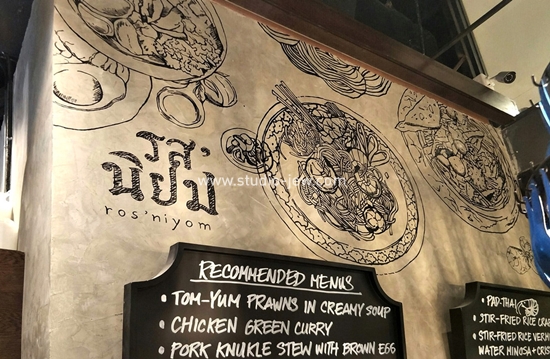 รส'
นิยม
ros'niyom
www.studio-jew.com
RECOMMENDED MENUS
• TOM-YUM PRAWNS IN CREAMY SOUP
• CHICKEN GREEN CURRY
• PORK KNUKLE STEW WITH BROWN EGG
• PAD-THAI
• STIR-FRIED RICE CRAB
• STIR-FRIED RICE VERM
WATER MIMOSA + CRIS